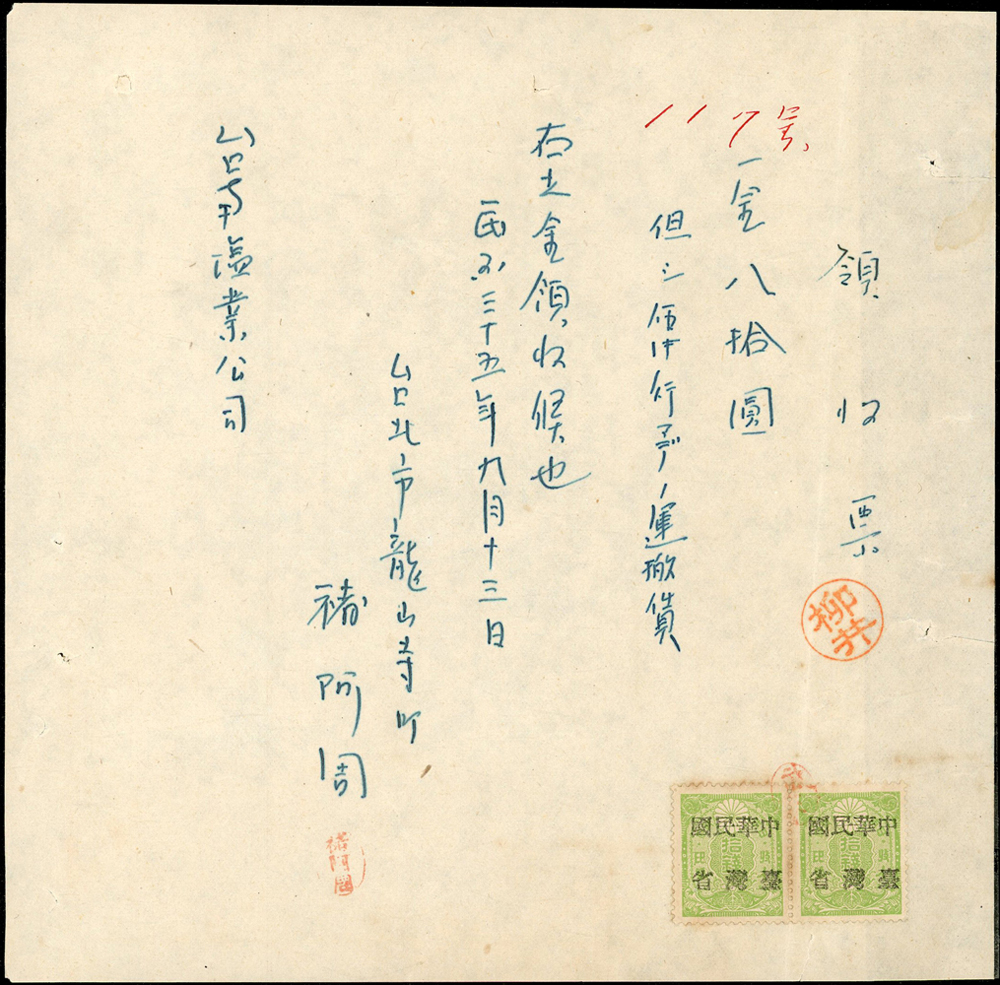 領收票
117号
一金八拾圓
但シ行デノ運搬賃
右之金領收候也
民國三十五年九月十三日
台北市龍山寺町
褚阿周
台湾塩業公司
柳井
中華民國
臺灣省
拾錢
中華民國
臺灣省
拾錢